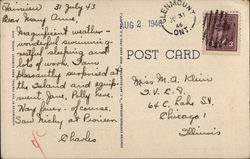 Rainier 31 July 43
Dear Mary Anne,
Magnificent weather -
wonderful swimming -
restful sleeping and
lots of work. I am
pleasantly surprised at
the Island and equip-
ment. Jane, Polly here.
Way fever, of course.
Saw Nicky at Pointe
Charles
AUG 2 1946
GLENMOUNT
JY 31
46
ONT.
POST CARD
Miss M. A. Klein
64 E. Lake St.
Chicago 1
Illinois